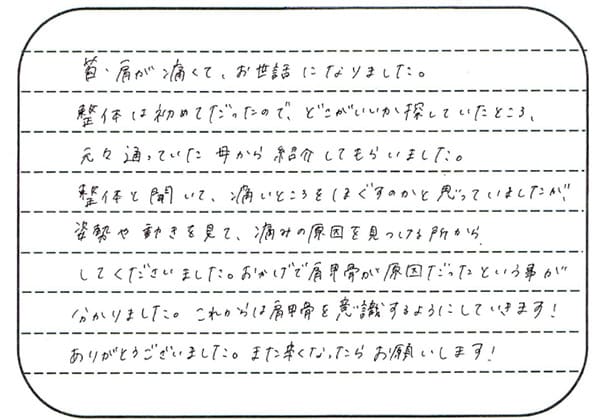 首・肩が痛くて、お世話になりました。
整体は初めてだったので、どこがいいか探していたところ、
元々通っていた母から紹介してもらいました。
整体と聞いて、痛いところをほぐすのかと思っていましたが、
姿勢や動きを見て、痛みの原因を見つける所から
してくださいました。おかげで肩甲骨が原因だったという事が
分かりました。これからは肩甲骨を意識するようにしていきます！
ありがとうございました。また辛くなったらお願いします！